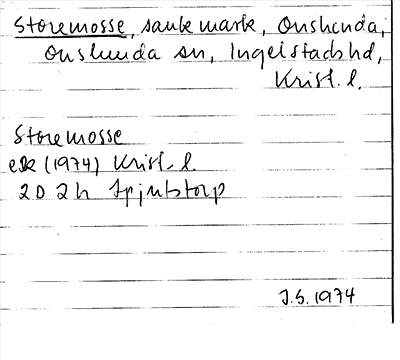 Storemosse, sank mark, Onslunda,
Onslunda sn, Ingelstads hd,
Krist. l.
Storemosse
ek (1974) Krist. l.
2D 2h Spjutstorp
J.S. 1974